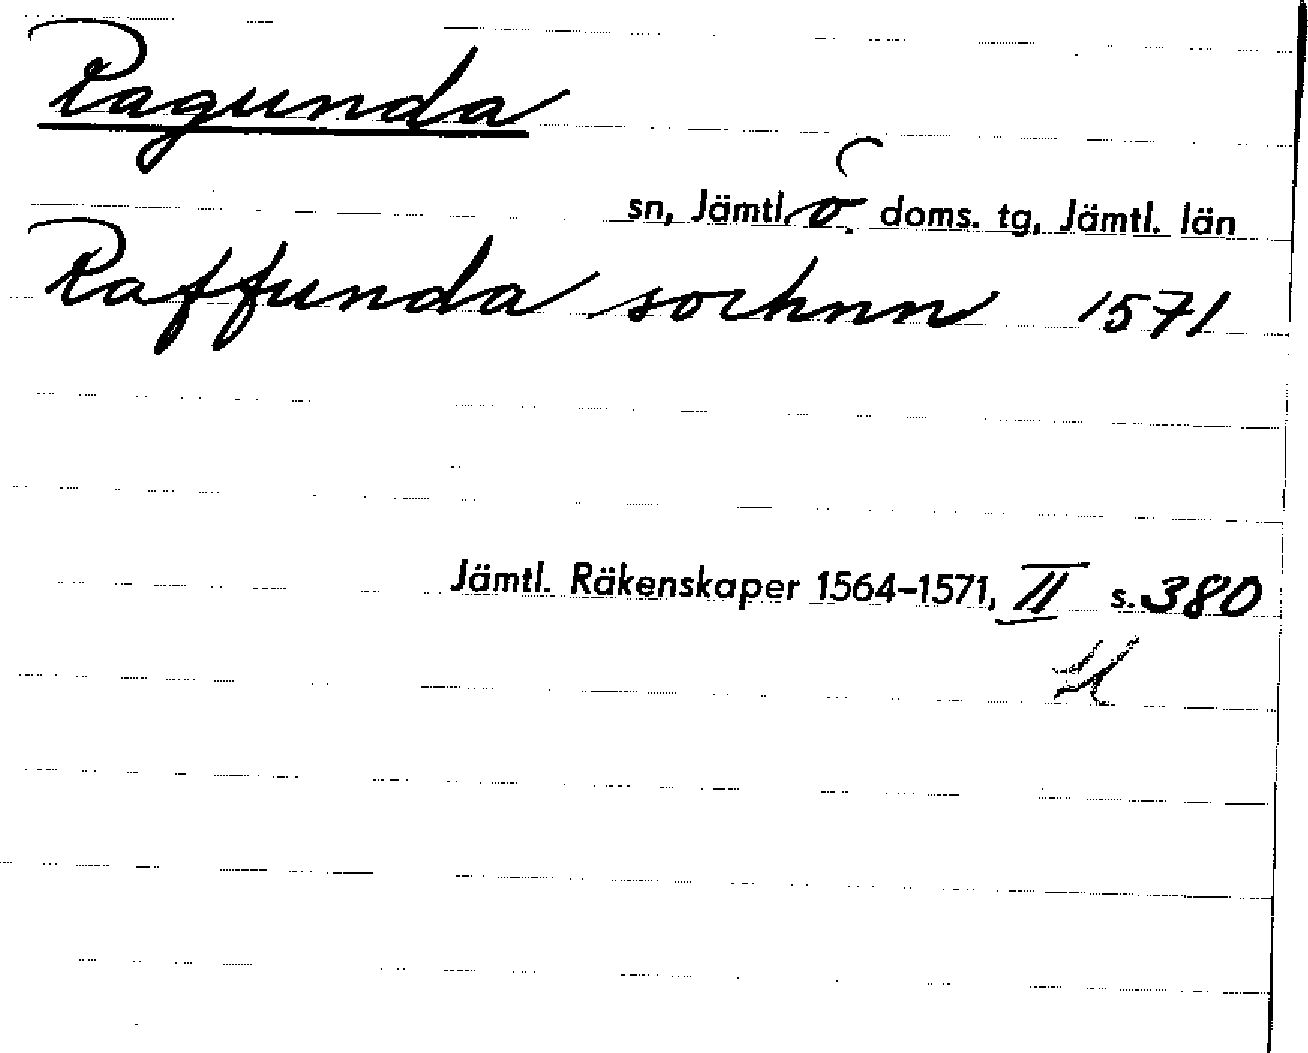 Ragunda
sn, Jämtl. ö. doms. tg, Jämtl. län
Raffunda sochnn 1571
Jämtl. Räkenskaper 1564–1571, II s. 380